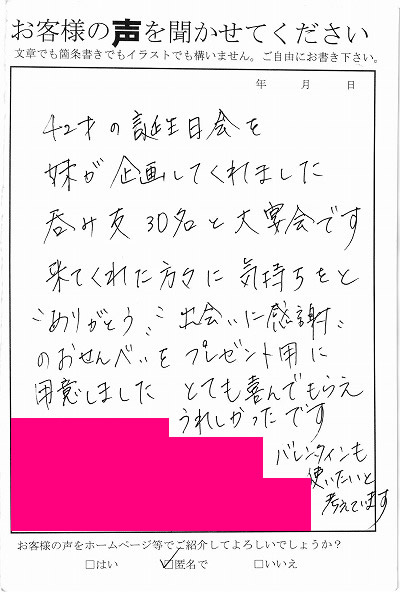 お客様の声を聞かせてください
文章でも箇条書きでもイラストでも構いません。ご自由にお書き下さい。
年　月　日
42才の誕生日会を
妹が企画してくれました
呑み友30名と大宴会です
来てくれた方々に気持ちをと
"ありがとう" "出会いに感謝"
のおせんべいをプレゼント用に
用意しました とても喜んでもらえ
うれしかったです
バレンタインも
使いたいと
考えています
お客様の声をホームページ等でご紹介してよろしいでしょうか？
□はい ☑匿名で □いいえ